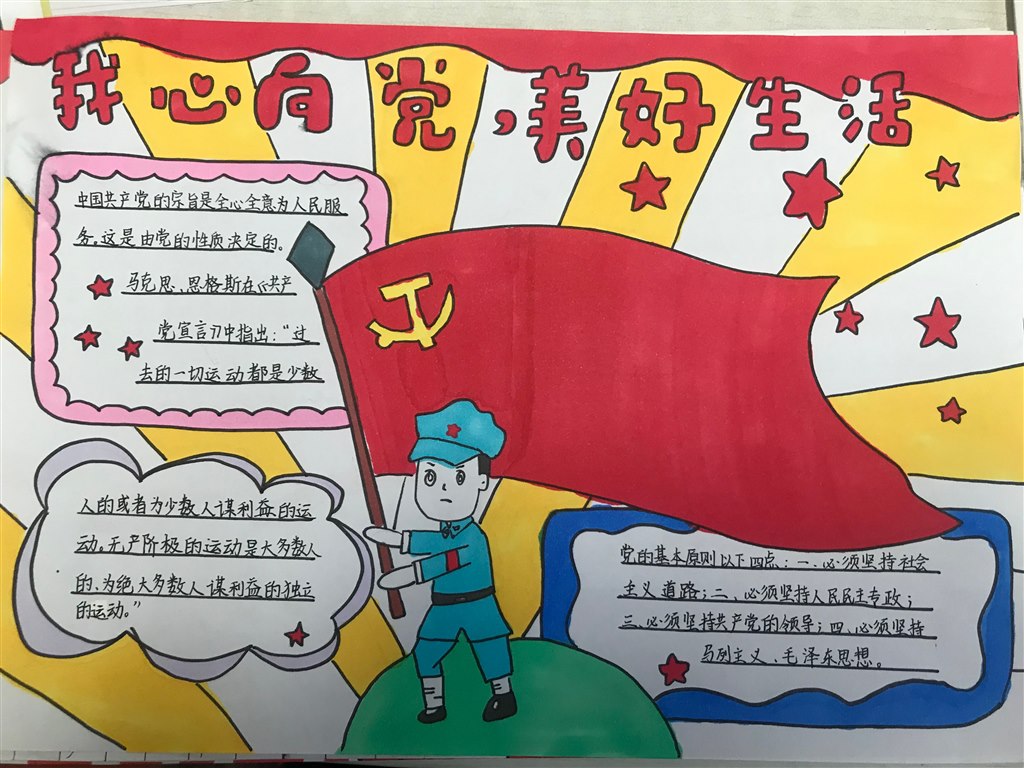 我心向党,美好生活
中国共产党的宗旨是全心全意为人民服
务。这是由党的性质决定的。
马克思、恩格斯在《共产
党宣言》中指出:“过
去的一切运动都是少数
人的或者为少数人谋利益的运
动。无产阶极的运动是大多数人
的、为绝大多数人谋利益的独立
的运动。”
党的基本原则以下四点:一、必须坚持社会
主义道路;二、必须坚持人民民主专政;
三、必须坚持共产党的领导;四、必须坚持
马列主义、毛泽东思想。